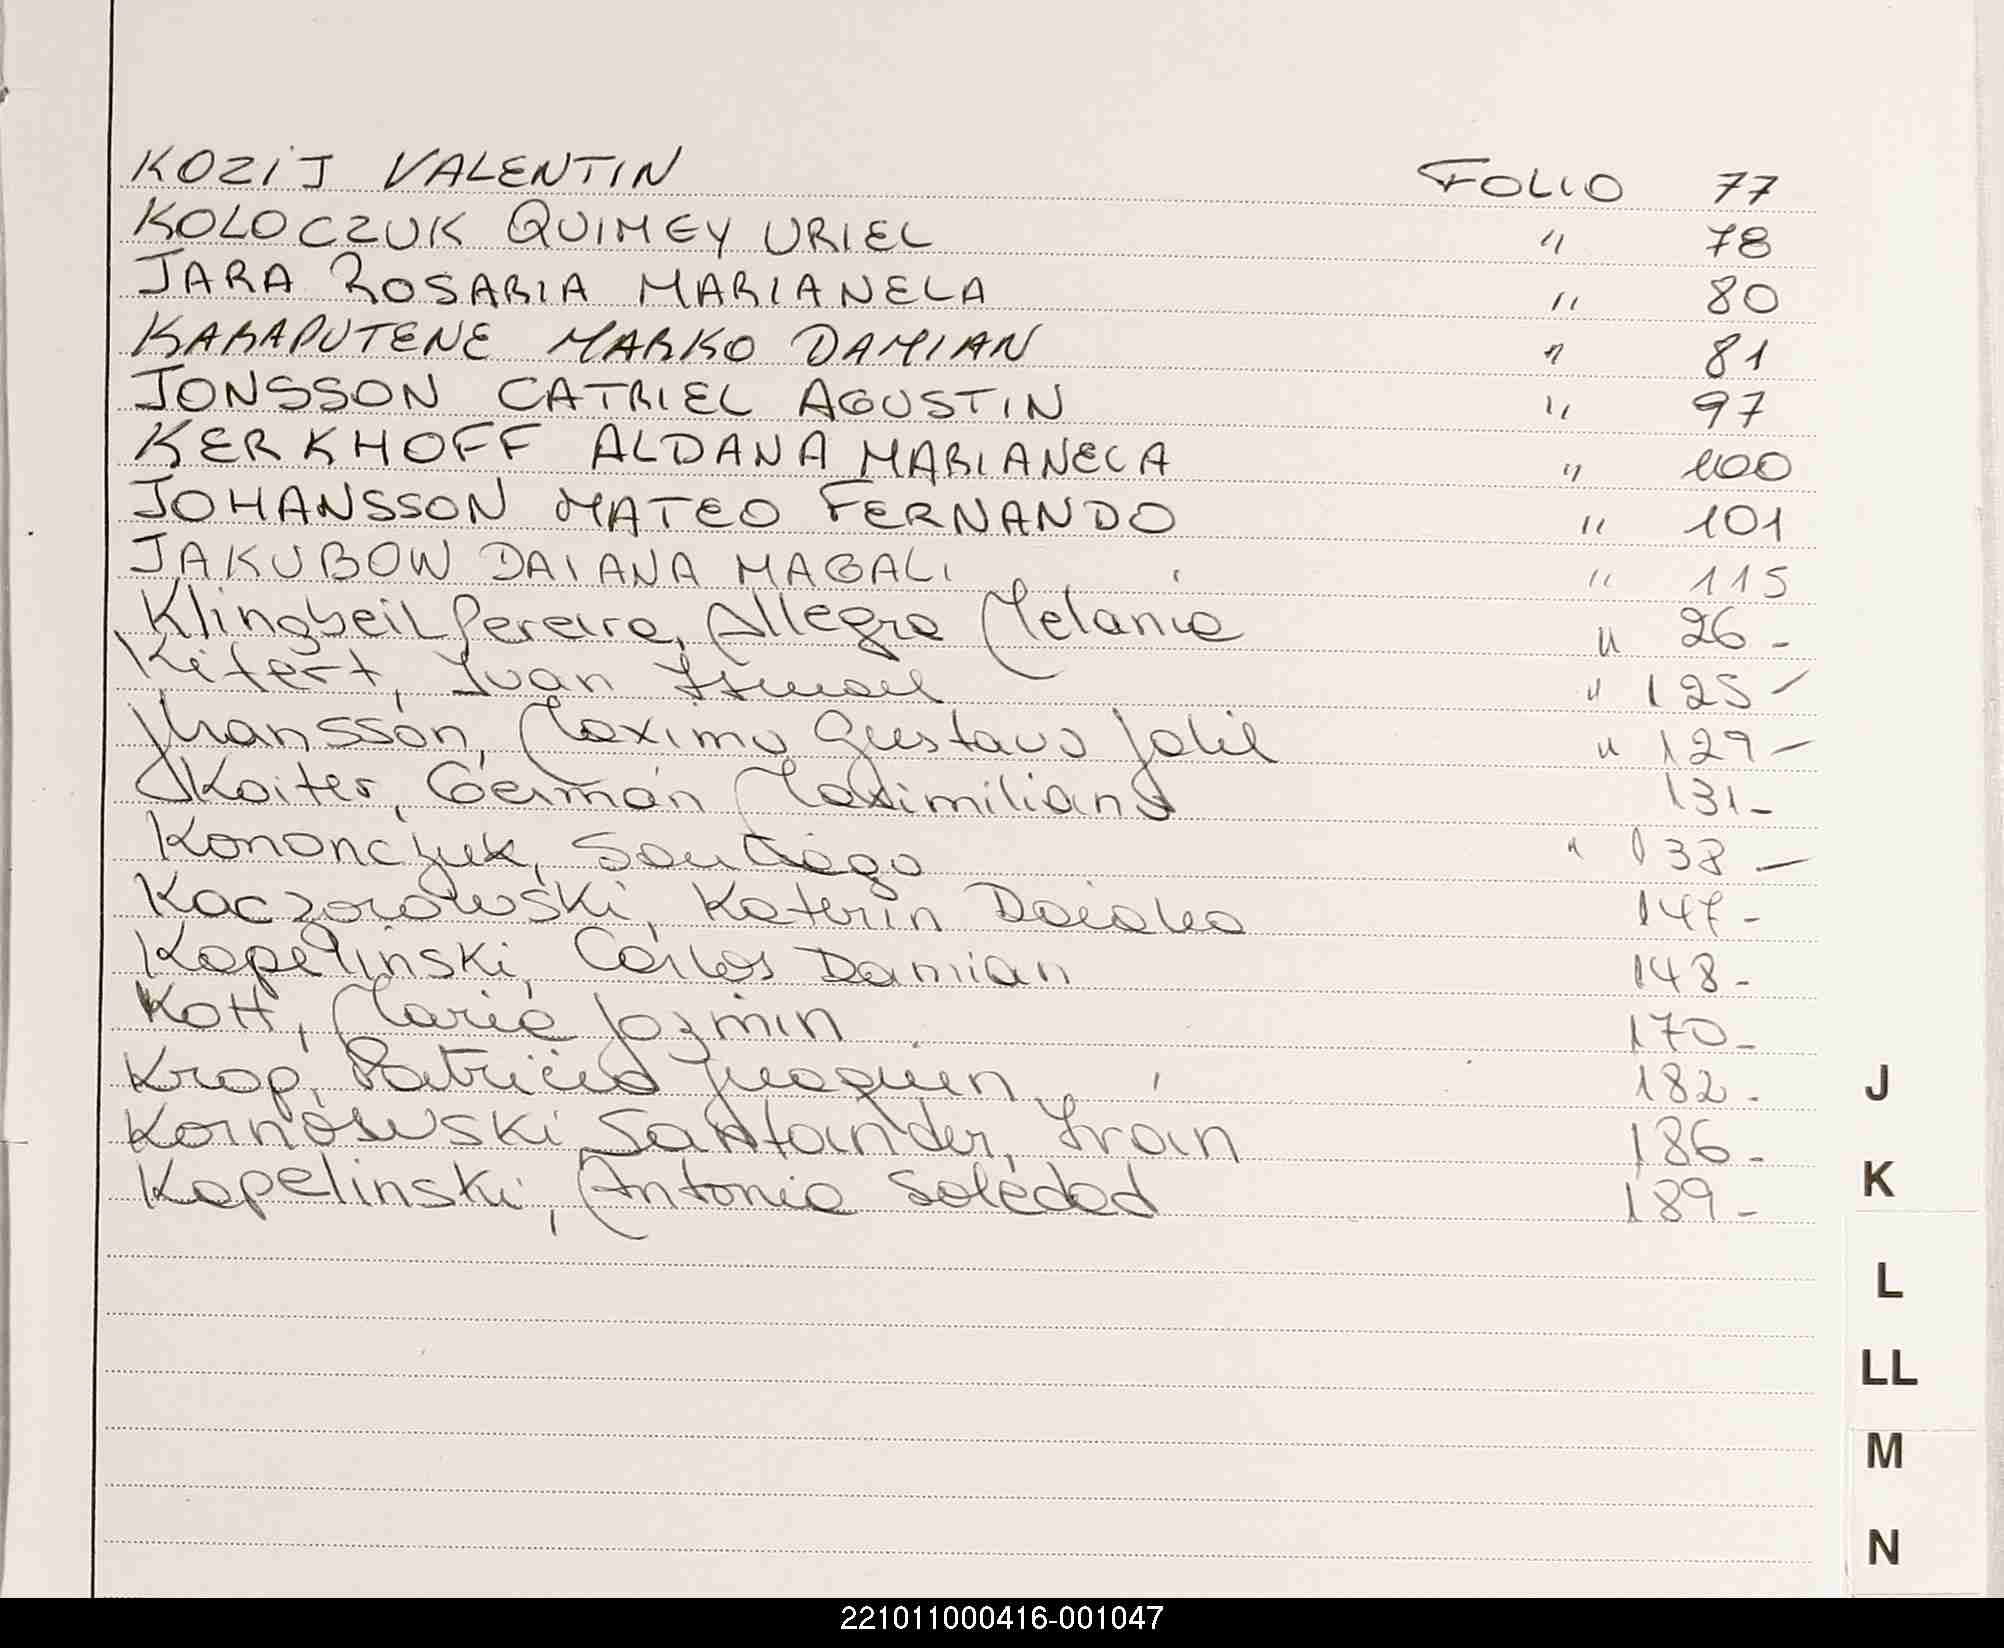 KOZIJ VALENTIN FOLIO 77
KOLOCZUK QUIMEY URIEL " 78
JARA ROSARIA MARIANELA " 80
KARAPUTENE MARKO DAMIAN " 81
JONSSON CATRIEL AGUSTIN " 97
KERKHOFF ALDANA MARIANELA " 100
JOHANSSON MATEO FERNANDO " 101
JAKUBOW DAIANA MAGALI " 115
Klingbeil Pereira, Allegra Melanie " 26 -
Kifert, Ivan Ismael " 125 -
Jhansson, Maximo Gustavo Joliel " 129 -
Koiter, Germán Maximiliano 131 -
Kononczuk, Santiago " 138 -
Kaczorowski, Katerin Daiana 147 -
Kapelinski, Carlos Damian 148 -
Kott, Maria Jazmin 170 -
Krop, Patricio Juaquin 182 -
Kornowski Santander, Ivan 186 -
Kapelinski, Antonia Soledad 189 -
J
K
L
LL
M
N
221011000416-001047